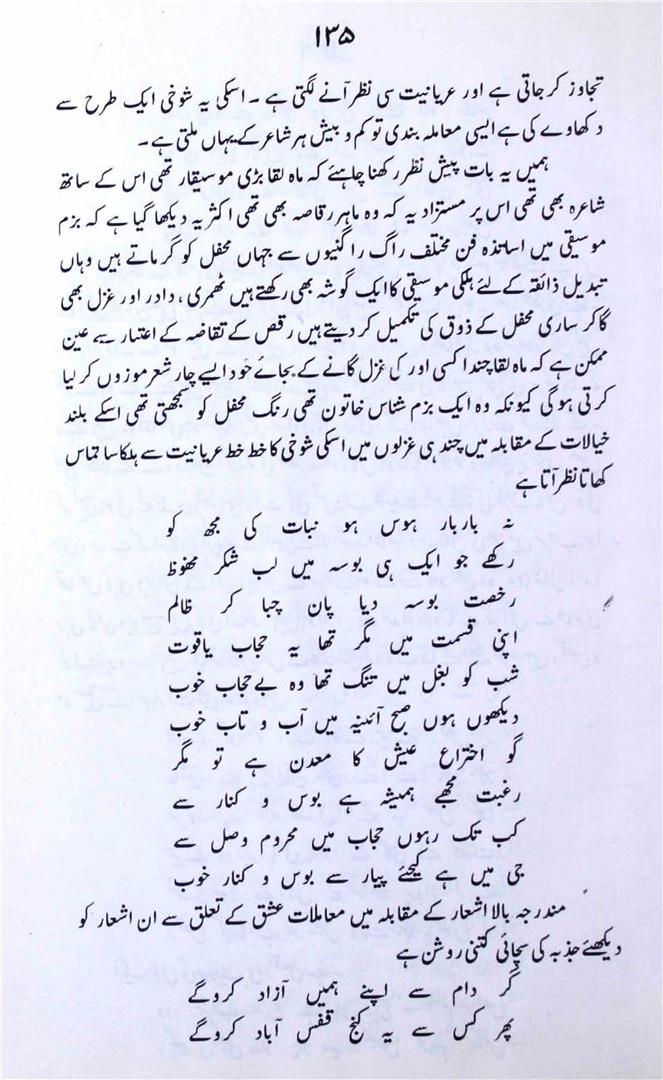 ۱۳۵
تجاوز کر جاتی ہے اور عریانیت سی نظر آنے لگتی ہے ۔ اسکی یہ شوخی ایک طرح سے
دکھاوے کی ہے ایسی معاملہ بندی تو کم و بیش ہر شاعر کے یہاں ملتی ہے ۔
ہمیں یہ بات پیش نظر رکھنا چاہئے کہ ماہ لقا بڑی موسیقار تھی اس کے ساتھ
شاعرہ بھی تھی اس پر مستزاد یہ کہ وہ ماہر رقاصہ بھی تھی اکثر یہ دیکھا گیا ہے کہ بزم
موسیقی میں اساتذہ فن مختلف راگ راگنیوں سے جہاں محفل کو گرماتے ہیں وہاں
تبدیل ذائقہ کے لئے ہلکی موسیقی کا ایک گوشہ بھی رکھتے ہیں ٹھمری ، دادر اور غزل بھی
گا کر ساری محفل کے ذوق کی تکمیل کر دیتے ہیں رقص کے تقاضہ کے اعتبار سے عین
ممکن ہے کہ ماہ لقا چندا کسی اور کی غزل گانے کے بجائے خود ایسے چار شعر موزوں کر لیا
کرتی ہوگی کیونکہ وہ ایک بزم شناس خاتون تھی رنگ محفل کو سمجھتی تھی اسکے بلند
خیالات کے مقابلہ میں چند ہی غزلوں میں اسکی شوخی کا خط خط عریانیت سے ہلکا سا تماس
کھاتا نظر آتا ہے
نہ بار بار ہوس ہو نبات کی مجھ کو
رکھے جو ایک ہی بوسہ میں لب شکر محفوظ
رخصت بوسہ دیا پان چبا کر ظالم
اپنی قسمت میں مگر تھا یہ حجاب یاقوت
شب کو بغل میں تنگ تھا وہ بے حجاب خوب
دیکھوں ہوں صبح آئینہ میں آب و تاب خوب
گو اختراع عیش کا معدن ہے تو مگر
رغبت مجھے ہمیشہ ہے بوس و کنار سے
کب تک رہوں حجاب میں محروم وصل سے
جی میں ہے کیجئے پیار سے بوس و کنار خوب
مندرجہ بالا اشعار کے مقابلہ میں معاملات عشق کے تعلق سے ان اشعار کو
دیکھئے جذبہ کی سچائی کتنی روشن ہے
گر دام سے اپنے ہمیں آزاد کروگے
پھر کس سے یہ کنج قفس آباد کروگے